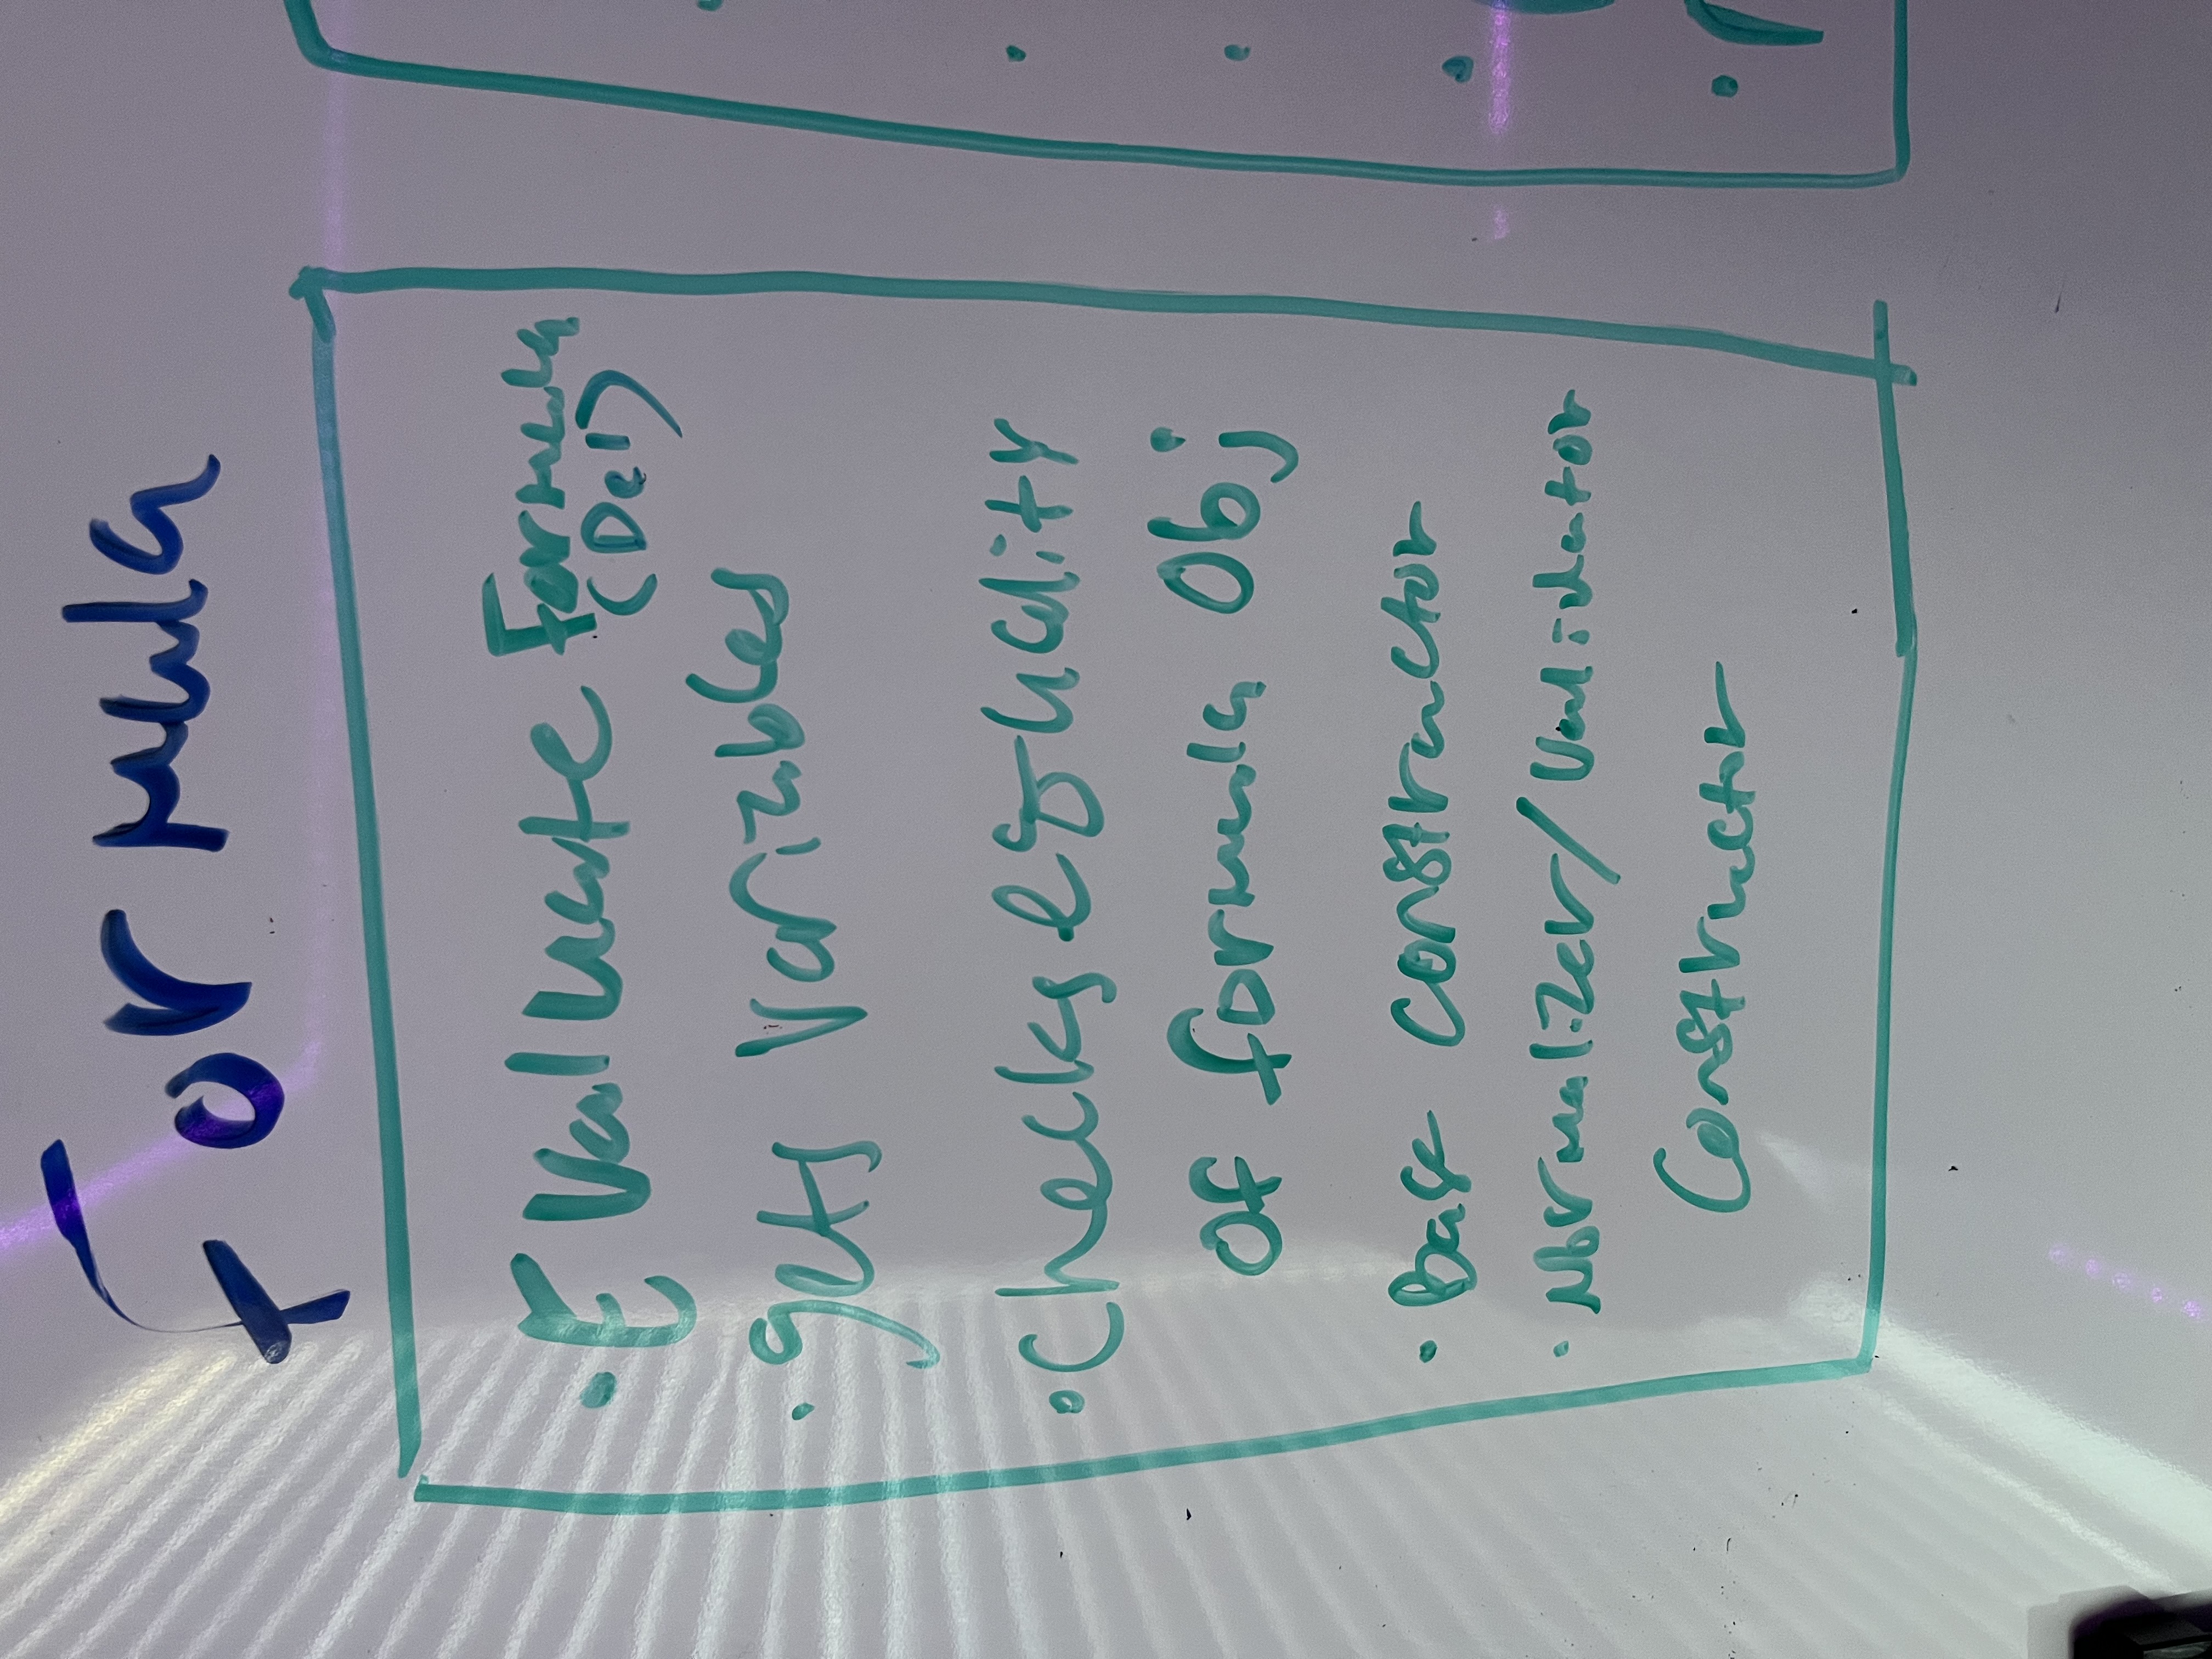 Formula
• Evaluate Formula
(Del)
• gets variables
• Checks equality
of formula Obj
• Base constructor
• Normalizer/Validator
Constructor